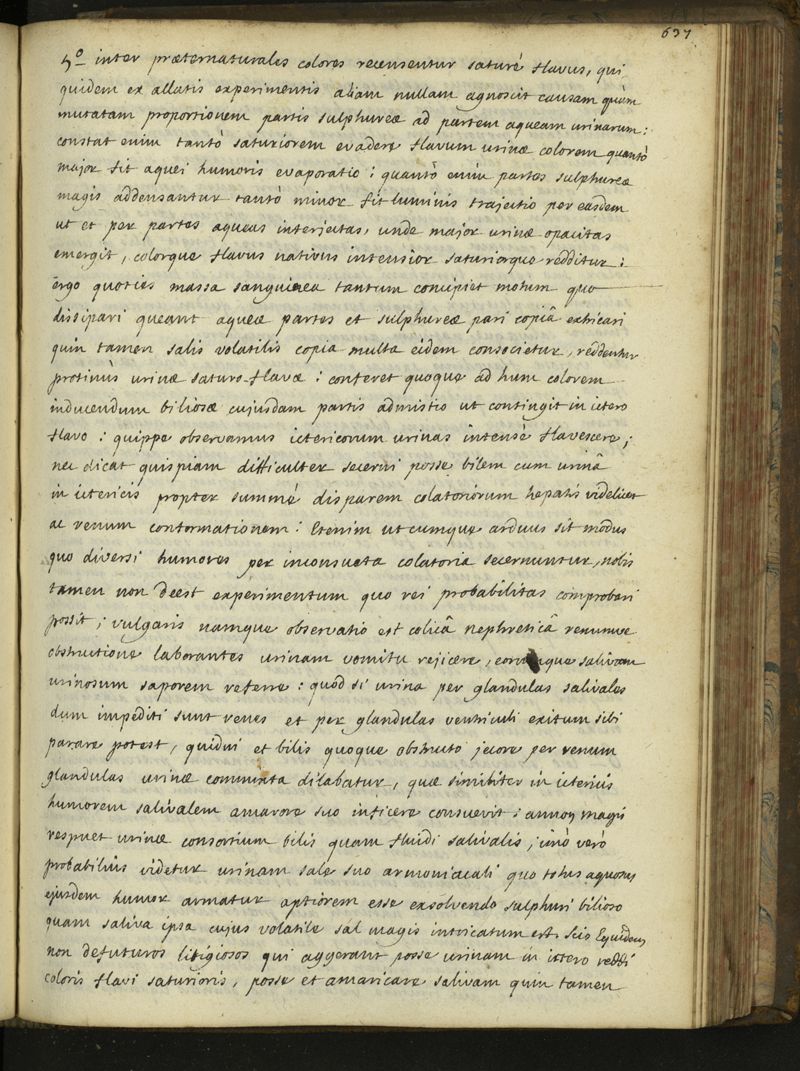 637
5º inter præternaturales colores recensentur saturè flavus, qui
quidem ex allatis experimentis aliam nullam agnoscit causam quàm
mutatam proportionem partis sulphureæ ad partem aqueam urinarum:
constat enim tantò saturiorem evadere flavum urinæ colorem quantò
major fit aquei humoris evaporatio: quantò enim partes sulphureæ
magis addensantur tantò minor fit luminis trajectio per easdem
ut et per partes aqueas interjectas, unde major urinæ opacitas
emergit, colorque flavus nativus intensior saturiorque redditur:
ergo quoties massa sanguinea tantum concipiet motum quo
dissipari queant aqueæ partes et sulphureæ pari copiâ extricari
quin tamen salis volatilis copia multa eidem consocietur, reddentur
protinùs urinæ saturo-flavæ: conferet quoque ad hunc colorem
inducendum biliosæ cujusdam partis admistio ut contingit in ictero
flavo: quippe observamus ictericorum urinas intensè flavescere;
nec dicat quispiam difficulter secerni posse bilem cum urinâ
in ictericis propter summè disparem colatoriorum hepatis videlicet
ac renum conformationem: Etenim utcumque arduus sit modus
quo diversi humores per inconsueta colatoria secernuntur, nobis
tamen non deest experimentum quo rei probabilitas comprobari
possit; vulgaris namque observatio est colicâ nephreticâ renumve
obstructione laborantes urinam vomitu rejicere, eorumque salivam
urinosum saporem referre: quòd si urina per glandulas salivales
dum impediti sunt renes et per glandulas ventriculi exitum sibi
parare potest, quidni et bilis quoque obstructo jecore per renum
glandulas urinæ commixta dilabatur, quæ similiter in ictericis
humorem salivalem amarore suo inficere consuevit; annon magis
respuet urinæ consortium bilis quam fluidi salivalis; imò verò
probabiliùs videtur urinam sale suo armoniacali quo totus aquosus
ejusdem humor armatur aptiorem esse exsolvendo sulphuri bilioso
quam saliva ipsa cujus volatile sal magis intricatum est. Scio Equidem
non defuturos litigiosos qui aggerant posse urinam in ictero reddi
coloris flavi saturioris, posse et amaricare salivam quin tamen